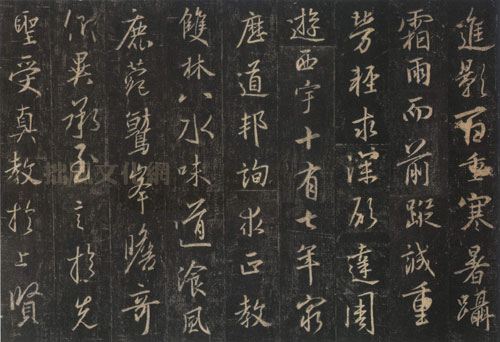 進影百重寒暑躡
霜雨而前蹤誠重
勞輕求深願達周
遊西宇十有七年窮
歷道邦詢求正教
雙林八水味道飡風
鹿菀鷲峯瞻奇
仰異承至言於先
聖受真教於上賢
拙風文化網